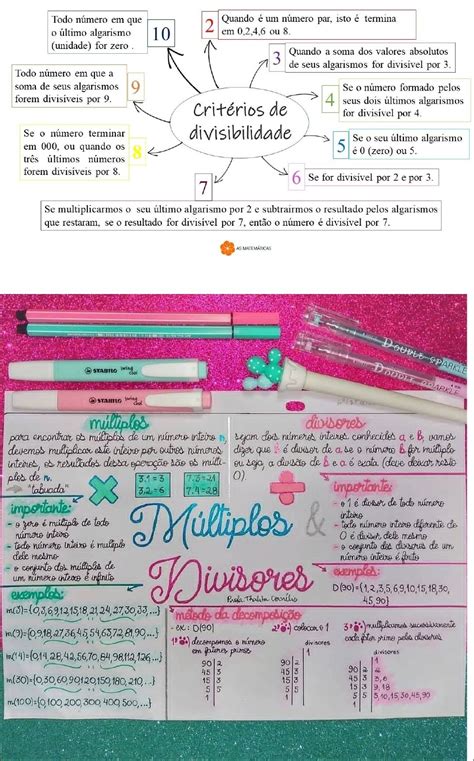 Todo número em que
o último algarismo
(unidade) for zero .
10
2
Quando é um número par, isto é termina
em 0,2,4,6 ou 8.
3
Quando a soma dos valores absolutos
de seus algarismos for divisível por 3.
Todo número em que a
soma de seus algarismos
forem divisíveis por 9.
9
Critérios de
divisibilidade
4
Se o número formado pelos
seus dois últimos algarismos
for divisível por 4.
Se o número terminar
em 000, ou quando os
três últimos números
forem divisíveis por 8.
8
5
Se o seu último algarismo
é 0 (zero) ou 5.
7
6
Se for divisível por 2 e por 3.
Se multiplicarmos o seu último algarismo por 2 e subtrairmos o resultado pelos algarismos
que restaram, se o resultado for divisível por 7, então o número é divisível por 7.
AS MATEMÁTICAS
DOUBLE SPARKLE
DOUBLE SPARKLE
STABILO swing cool
STABILO swing cool
múltiplos
para encontrar os múltiplos de um número inteiro n,
devemos multiplicar este inteiro por outros números
inteiros, os resultados dessa operação são os múlti-
plos de n.
"tabuada"
3.1 = 3
3.2 = 6
7.3 = 21
7.4 = 28
divisores
sejam dois números inteiros conhecidos a e b, vamos
dizer que b é divisor de a se o número b for múltiplo
ou seja, a divisão de b e a é exata (deve deixar resto
0).
importante:
- o zero é múltiplo de todo
número inteiro
- todo número inteiro é múltiplo
dele mesmo
- o conjunto dos múltiplos de
um número inteiro é infinito
Múltiplos
&
Divisores
importante:
- o 1 é divisor de todo número
inteiro
- todo número inteiro diferente de
0 é divisor dele mesmo
- o conjunto dos divisores de um
número inteiro é finito
exemplos:
D(90) = {1,2,3,5,6,9,10,15,18,30,
45,90}
exemplos:
m(3)={0,3,6,9,12,15,18,21,24,27,30,33,...}
m(9)={0,9,18,27,36,45,54,63,72,81,90...}
m(14)={0,14,28,42,56,70,84,98,112,126...}
m(30)={0,30,60,90,120,150,180,210...}
m(100)={0,100,200,300,400,500,...}
método da decomposição
- ex.: D(90)
1º decompomos o número
em fatores primos
90 2
45 3
15 3
5 5
1
2º colocar o 1
divisores
1
90 2
45 3
15 3
5 5
1
3º multiplicamos sucessivamente
cada fator primo pelos divisores
divisores
1
90 2 2
45 3 3,6
15 3 9,18
5 5 5,10,15,30,45,90
1